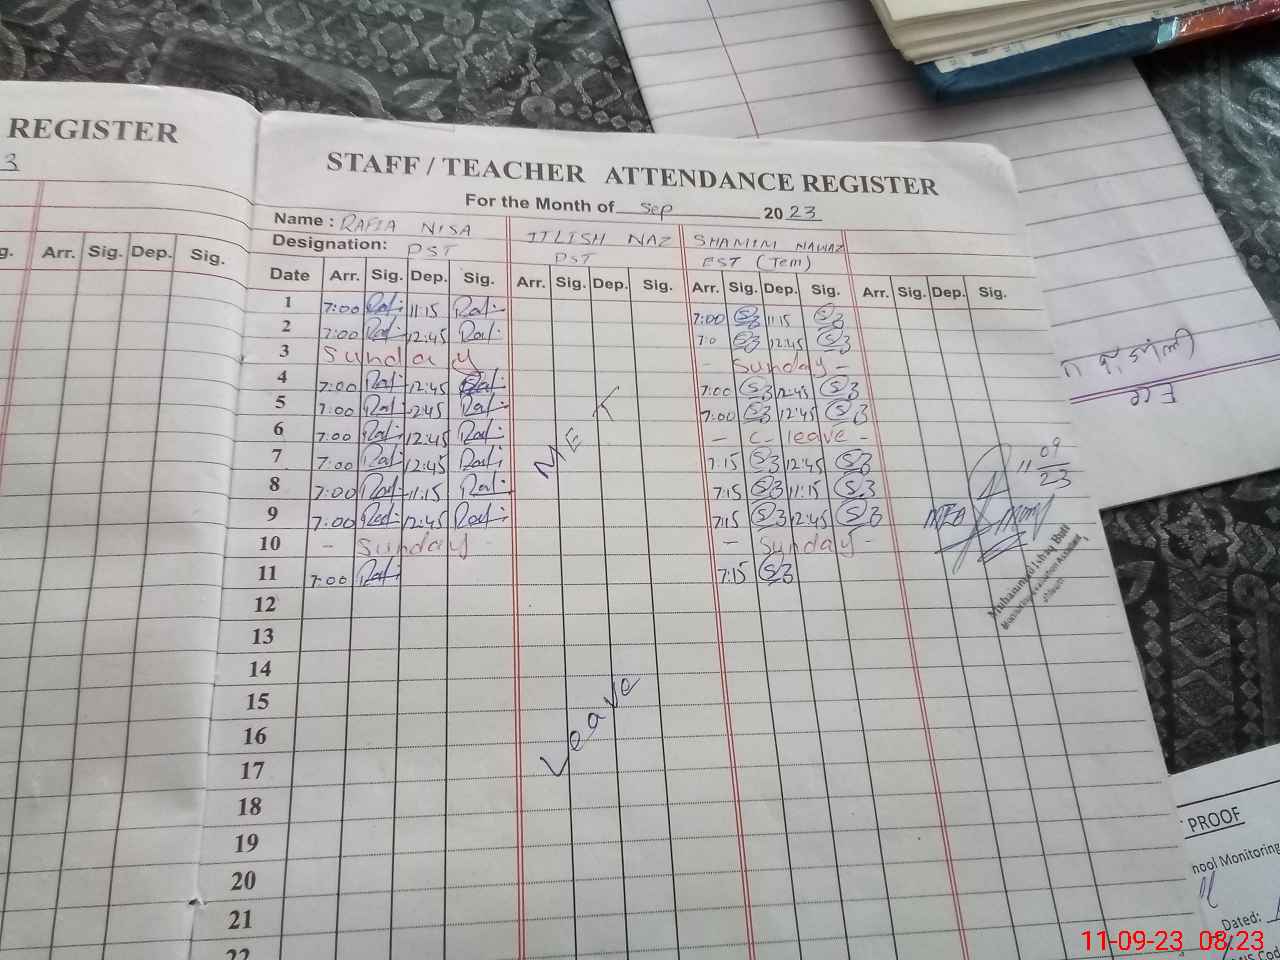 REGISTER
3
g. Arr. Sig. Dep. Sig.
STAFF / TEACHER ATTENDANCE REGISTER
For the Month of Sep 2023
Name : RAFIA NISA JTLISH NAZ SHAMIM NAWAZ
Designation: PST PST EST (Tem)
Date Arr. Sig. Dep. Sig. Arr. Sig. Dep. Sig. Arr. Sig. Dep. Sig. Arr. Sig. Dep. Sig.
1 7:00 Raf: 11:15 Raf: 7:00 11:15
2 7:00 Raf: 12:45 Raf: 7:0 12:45
3 Sunday - Sunday -
4 7:00 Raf: 12:45 Raf: 7:00 12:45
5 7:00 Raf: 12:45 Raf: 7:00 12:45
6 7:00 Raf: 12:45 Raf: - C- leave -
7 7:00 Raf: 12:45 Raf: 7:15 12:45
8 7:00 Raf: 11:15 Raf: 7:15 11:15
9 7:00 Raf: 12:45 Raf: 7:15 12:45
10 - Sunday - - Sunday -
11 7:00 Raf: 7:15
12
13
14
15
16
17
18
19
20
21
22
Leave
11 09
23
MEA
Muhammad Ishaq Butt
PROOF
Dated:
11-09-23 08:23